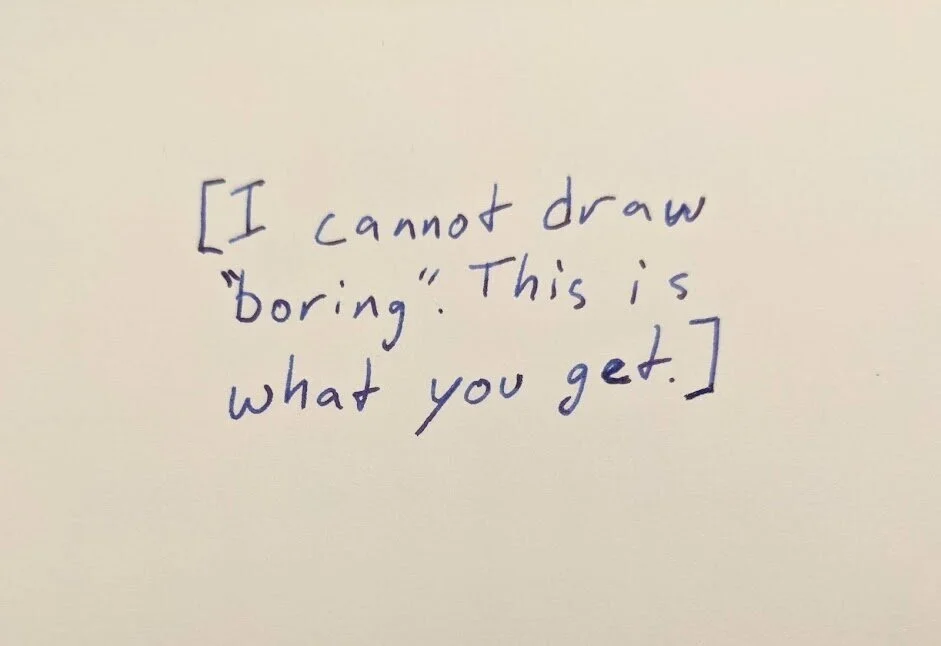 [I cannot draw
"boring". This is
what you get.]